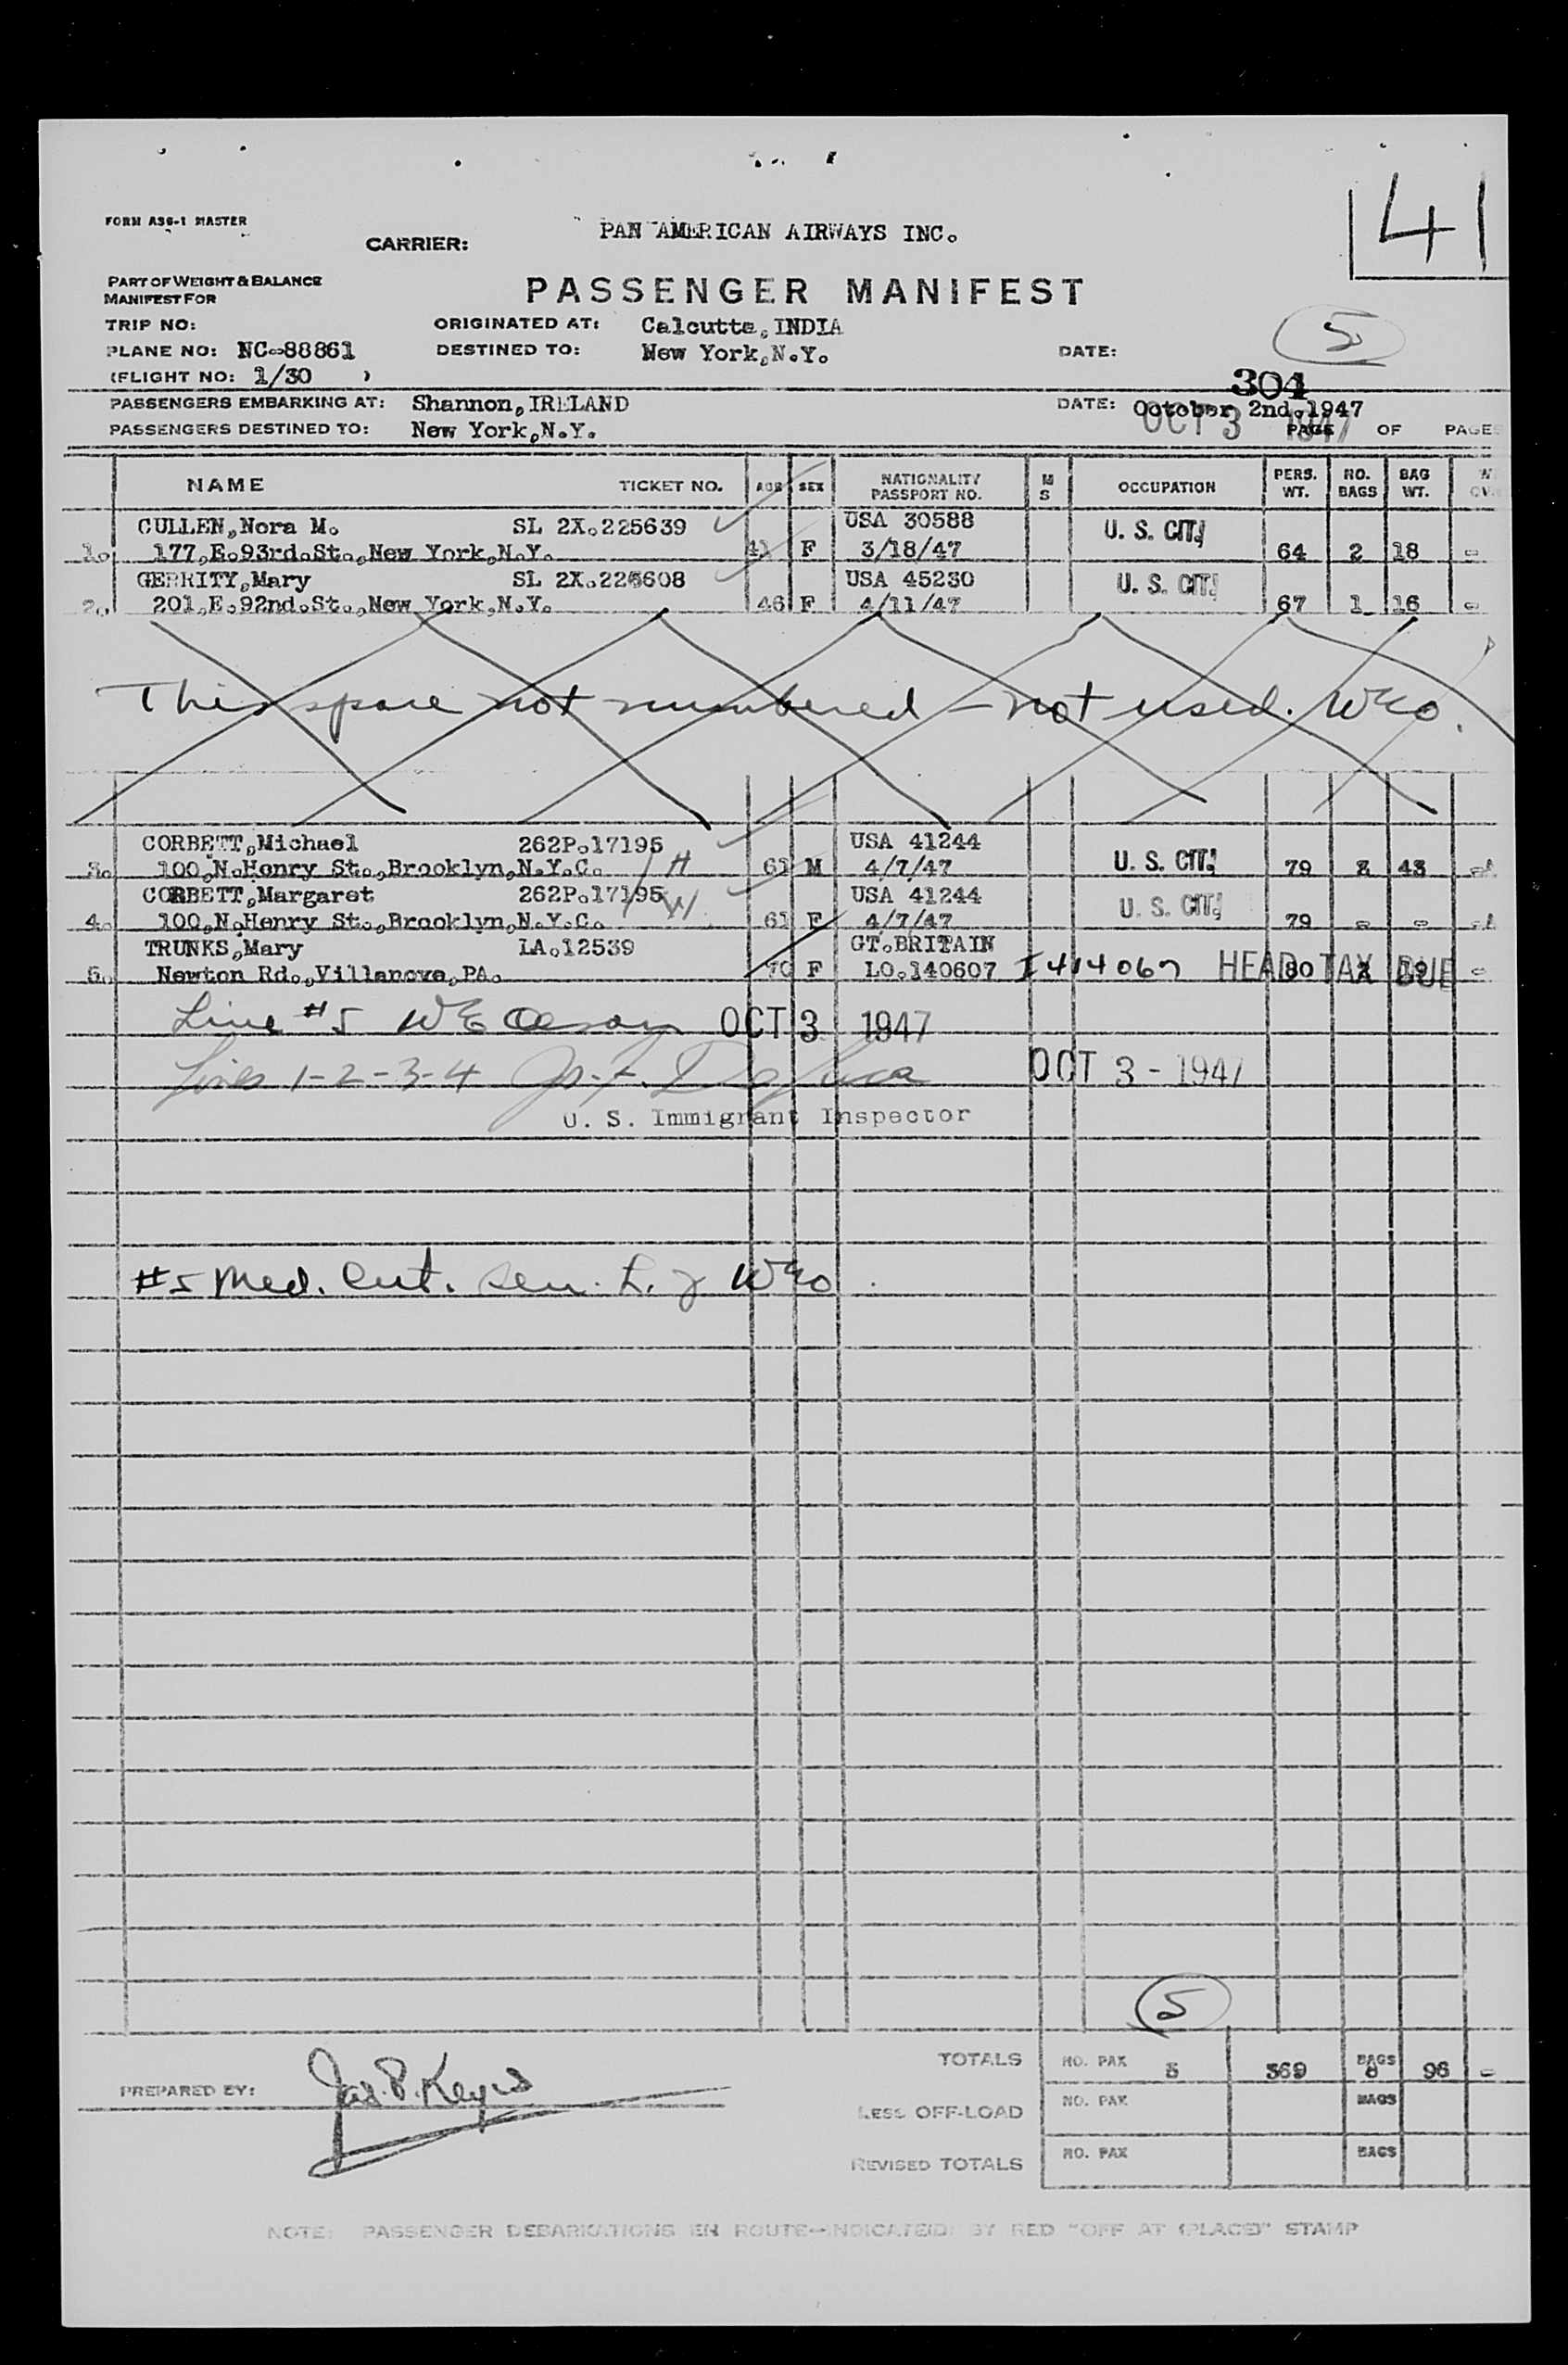 FORM A36-1 MASTER
41
CARRIER: PAN AMERICAN AIRWAYS INC.
PART OF WEIGHT & BALANCE
MANIFEST FOR
PASSENGER MANIFEST
TRIP NO:
ORIGINATED AT: Calcutta, INDIA
5
PLANE NO: NC-88861
DESTINED TO: New York, N.Y.
DATE:
(FLIGHT NO: 1/30 )
304
PASSENGERS EMBARKING AT: Shannon, IRELAND
DATE: October 2nd, 1947
OCT 3 1947
PASSENGERS DESTINED TO: New York, N.Y.
PAGE OF PAGES
NAME TICKET NO. AGE SEX NATIONALITY PASSPORT NO. M S OCCUPATION PERS. WT. NO. BAGS BAG WT.
CULLEN, Nora M. SL 2X.225639 USA 30588 U. S. CIT.
1. 177, E. 93rd. St., New York, N.Y. 41 F 3/18/47 64 2 18 -
GERRITY, Mary SL 2X.225608 USA 45230 U. S. CIT.
2. 201, E. 92nd. St., New York, N.Y. 46 F 4/11/47 67 1 16 -
This space not numbered - not used. WEO.
CORBETT, Michael 262P.17195 USA 41244
3. 100, N. Henry St., Brooklyn, N.Y.C. H M 4/7/47 U. S. CIT. 79 43
CORBETT, Margaret 262P.17195 USA 41244
4. 100, N. Henry St., Brooklyn, N.Y.C. W F 4/7/47 U. S. CIT. 79 - -
TRUNKS, Mary LA.12539 GT. BRITAIN
5. Newton Rd., Villanova, PA. 70 F LO.140607 I 414067 HEAD TAX DUE 80 19 -
Line #5 WE OCT 3 1947
Lines 1-2-3-4 OCT 3 - 1947
U. S. Immigrant Inspector
#5 Med. Cert. Sen. WEO.
5
TOTALS NO. PAX 5 369 BAGS 8 96 -
PREPARED BY: Jas. P. Keyes
LESS OFF-LOAD NO. PAX BAGS
REVISED TOTALS NO. PAX BAGS
NOTE: PASSENGER DEBARKATIONS EN ROUTE-INDICATED BY RED "OFF AT (PLACE)" STAMP